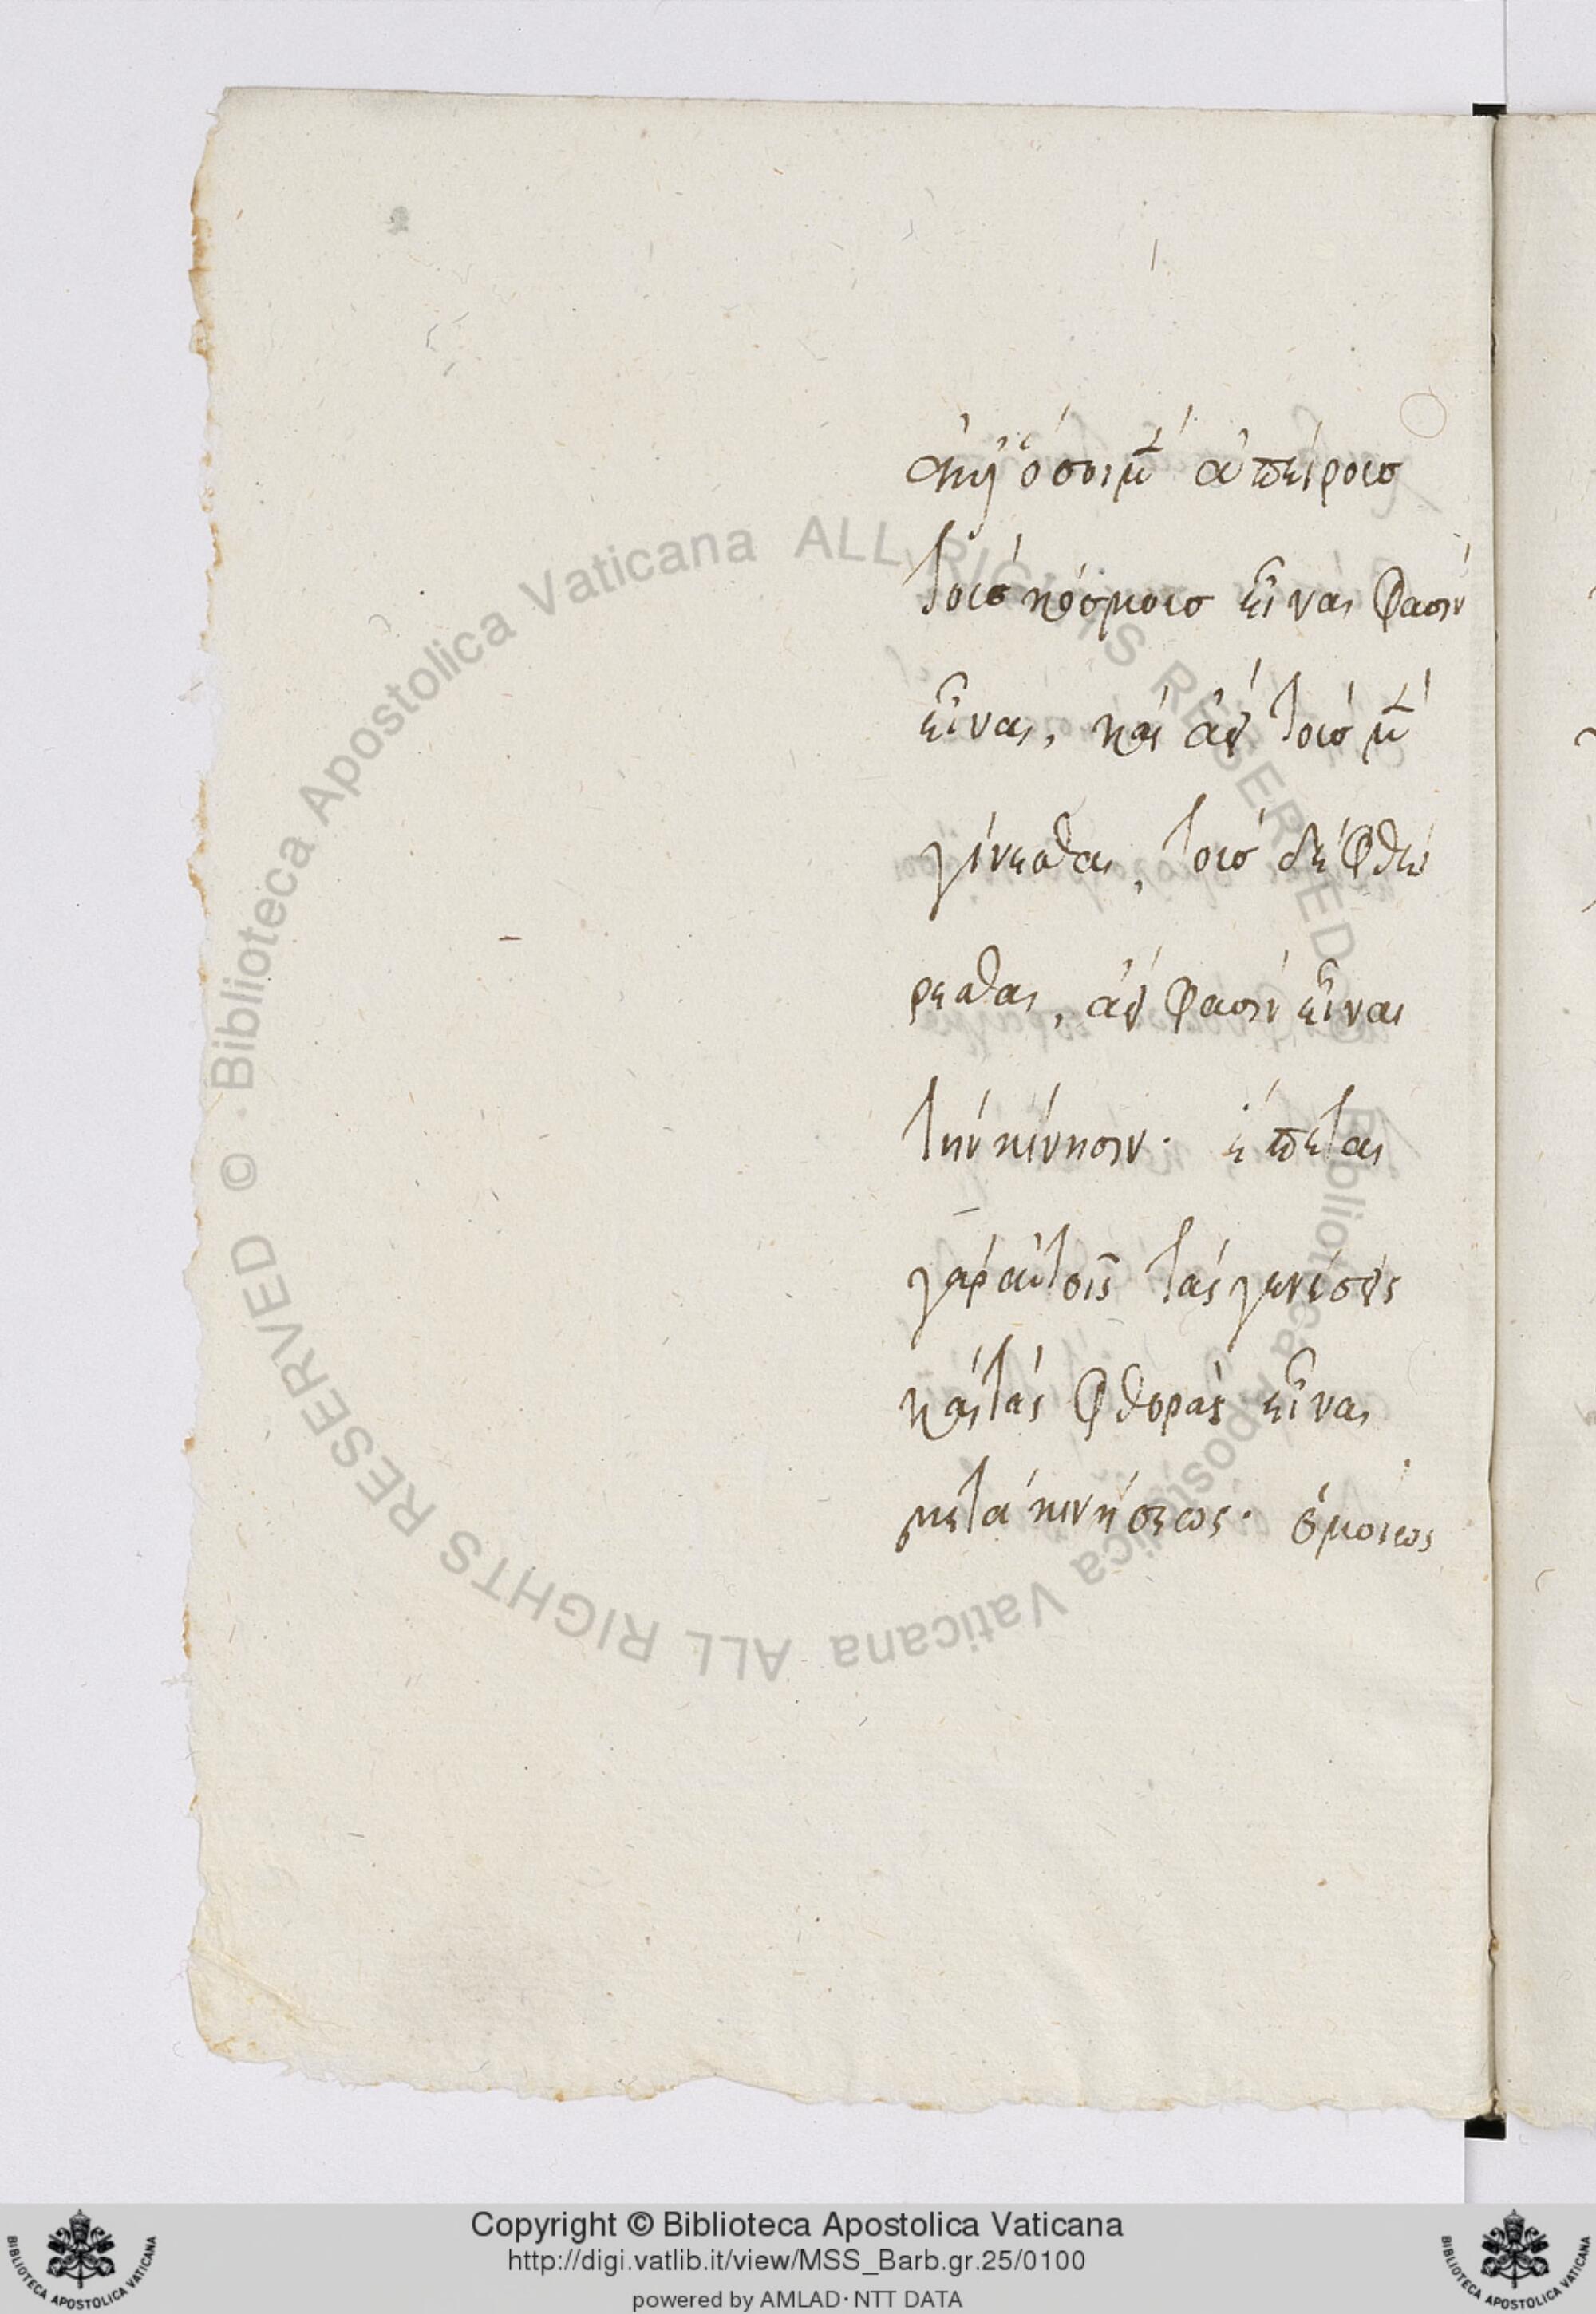 ἀλλ' ὅσοι μὲν ἀπείρους
τοὺς κόσμους εἶναι φασὶν
εἶναι, καὶ ἀεὶ τοὺς μὲν
γίνεσθαι, τοὺς δὲ φθεί
ρεσθαι, ἀεὶ φασὶν εἶναι
τὴν κίνησιν· ἕπεται
γὰρ αὐτοῖς τὰς γενέσεις
καὶ τὰς φθορὰς εἶναι
μετὰ κινήσεως· ὁμοίως
© Biblioteca Apostolica Vaticana ALL RIGHTS RESERVED © Biblioteca Apostolica Vaticana ALL RIGHTS RESERVED
Copyright © Biblioteca Apostolica Vaticana
http://digi.vatlib.it/view/MSS_Barb.gr.25/0100
powered by AMLAD·NTT DATA
BIBLIOTECA APOSTOLICA VATICANA
BIBLIOTECA APOSTOLICA VATICANA